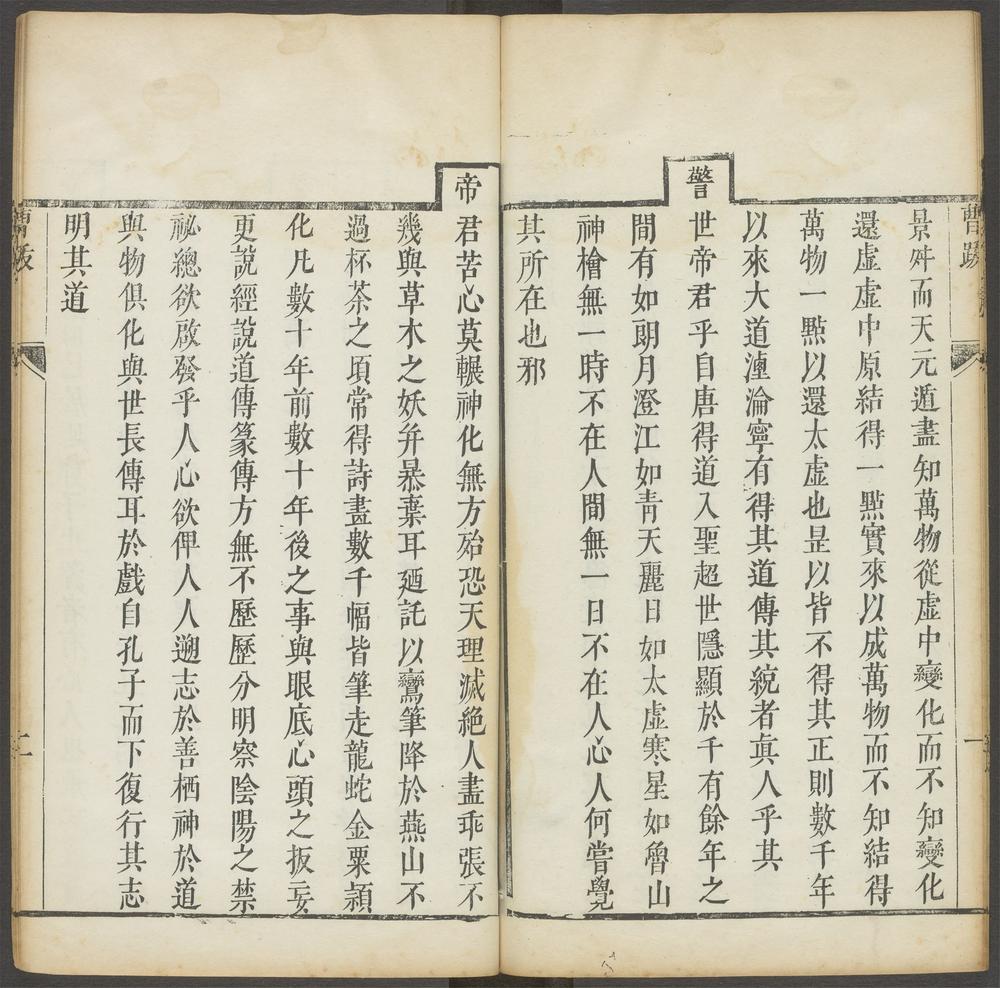 景舛而天元遁盡知萬物從虛中變化而不知變化
還虛虛中原結得一點實來以成萬物而不知結得
萬物一點以還太虛也昰以皆不得其正則數千年
以來大道湮淪寧有得其道傳其統者眞人乎其
警
世帝君乎自唐得道入聖超世隱顯於千有餘年之
間有如朗月澄江如靑天麗日如太虛寒星如魯山
神檜無一時不在人間無一日不在人心人何嘗覺
其所在也邪
帝
君苦心莫輾神化無方殆恐天理滅絕人盡乖張不
幾與草木之妖并暴棄耳廼託以鸞筆降於燕山不
過杯茶之頃常得詩畫數千幅皆筆走龍蛇金粟頴
化凡數十年前數十年後之事與眼底心頭之扳妄
更說經說道傳篆傳方無不歷歷分明察陰陽之禁
祕總欲啟發乎人心欲俾人人遡志於善栖神於道
與物俱化與世長傳耳於戲自孔子而下復行其志
明其道
一
二